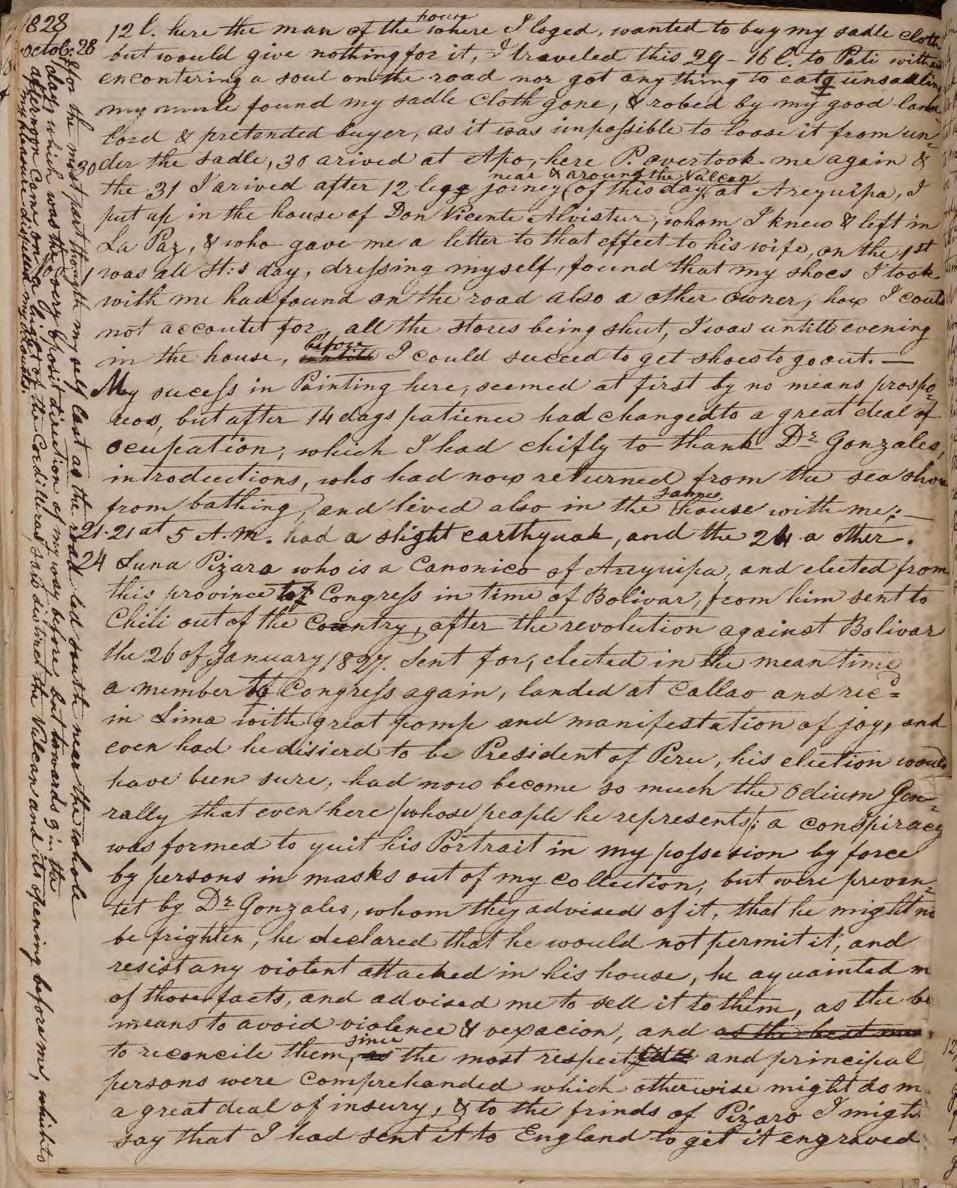 1828
Octob: 28
12 l. here the man of the house where I loged, wanted to buy my sadle cloth
but would give nothing for it, I traveled this 29 - 16 l. to Pati without
encontering a soul on the road nor got any thing to eat, unsadling
my mule found my sadle cloth gone, & robed by my good land
lord & pretended buyer, as it was impossible to loose it from un-
30 der the sadle, 30 arived at Apo, here P. overtook me again &
the 31 I arived after 12 legg jorney (of this day near & around the Vulcan) at Arequipa, I
put up in the house of Don Vicente Alvistur, whom I knew & left in
La Paz, & who gave me a letter to that effect to his wife, on the 1st
1 was all St:s day, dressing myself, found that my shoes I took
with me had found on the road also a other owner, how I could
not accoutet for, all the stores being shut, I was untill evening
in the house, before I could suceed to get shoes to go out. —
My sucess in Painting here, seemed at first by no means prospe-
rous, but after 14 days patience had changed to a great deal of
ocupation, which I had chifly to thank Dr Gonzales,
introductions, who had now returned from the sea shore
from bathing, and lived also in the same house with me: —
21. 21 at 5 A.M. had a slight earthquak, and the 24 a other.
24 Luna Pizaro who is a Canonico of Arequipa, and elected from
this province to Congress in time of Bolivar, from him sent to
Chili out of the Country, after the revolution against Bolivar
the 26 of January 1827. Sent for, elected in the mean time
a member to Congress again, landed at Callao and recd
in Lima with great pomp and manifestation of joy, and
even had he disierd to be President of Peru, his election would
have been sure, had now become so much the Odium Gen-
rally that even here (whose people he represents): a conspiracy
was formed to quit his Portrait in my possesion by force
by persons in masks out of my collection, but were preven-
tet by Dr Gonzales, whom they advised of it, that he might no
be frighten, he declared that he would not permit it, and
resist any violent attacked in his house, he aquainted m
of those facts, and advised me to sell it to them, as the be
means to avoid violence & vexacion, and as the best mea
to reconcile them, since the most respect and principal
persons were comprehanded which otherwise might do m
a great deal of insury, & to the frinds of Pizaro I might
say that I had sent it to England to get it engraved
for the most part thought my self lost as the road led south near the whole
day, which was the very oposit direction of my way before, but towards 3 in the
afternoon came on a hight of the Cordilleras, said distinct the Vulcan and its opening before me, which to
my pleasure dispelled my doubts.